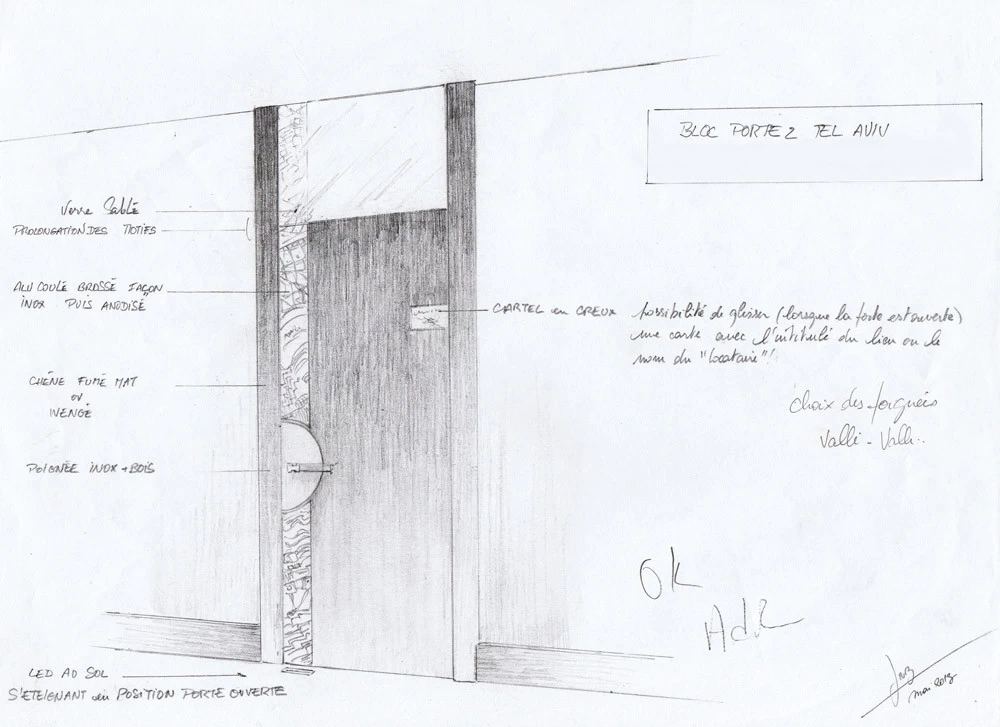 BLOC PORTE 2 TEL AVIV
Verre Sablé
PROLONGATION DES MOTIFS
ALU COULÉ BROSSÉ FAÇON
INOX PUIS ANODISÉ
CARTEL en CREUX
possibilité de glisser (lorsque la porte est ouverte)
une carte avec l'intitulé du lieu ou le
nom du "locataire"!
CHÊNE FUMÉ MAT
OU
WENGÉ
choix des poignées
Valli - Valli..
POIGNÉE INOX + BOIS
OK
LED AU SOL
S'ETEIGNANT en POSITION PORTE OUVERTE
mai 2013